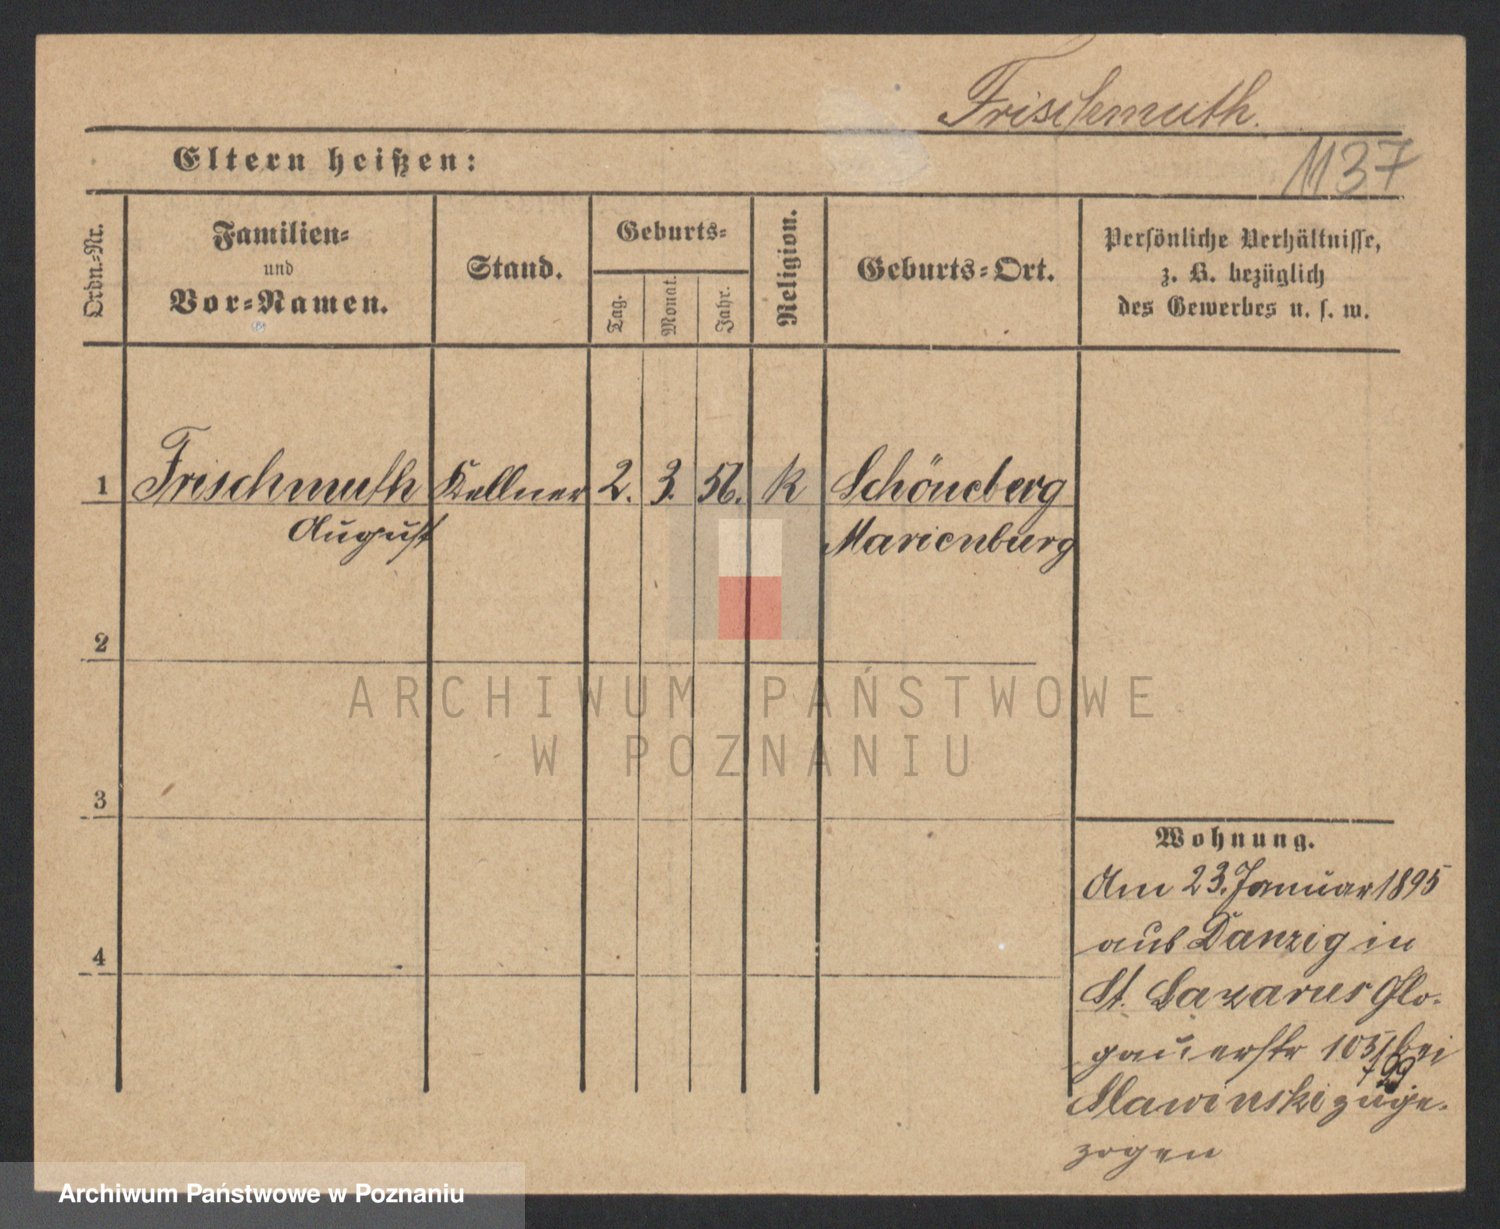 Frischmuth.
Eltern heißen:
1137
Ordn.-Nr.
Familien-
und
Vor-Namen.
Stand.
Geburts-
Tag.
Monat.
Jahr.
Religion.
Geburts-Ort.
Persönliche Verhältnisse,
z. B. bezüglich
des Gewerbes u. s. w.
1 Frischmuth Kellner 2. 3. 56. k Schöneberg
August Marienburg
2
3
4
ARCHIWUM PAŃSTWOWE
W POZNANIU
Wohnung.
Am 23. Januar 1895
aus Danzig in
St. Lazarus Glo-
gauerstr 103/ bei
Slawinski zuge-
zogen
Archiwum Państwowe w Poznaniu